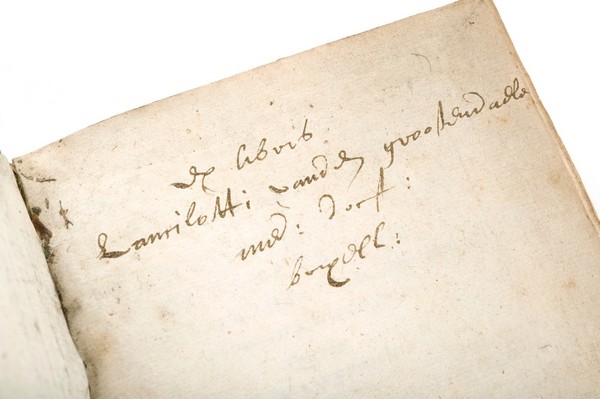 Ex libris
Lancilotti vanden groosendaele
med: doct:
bruxell: